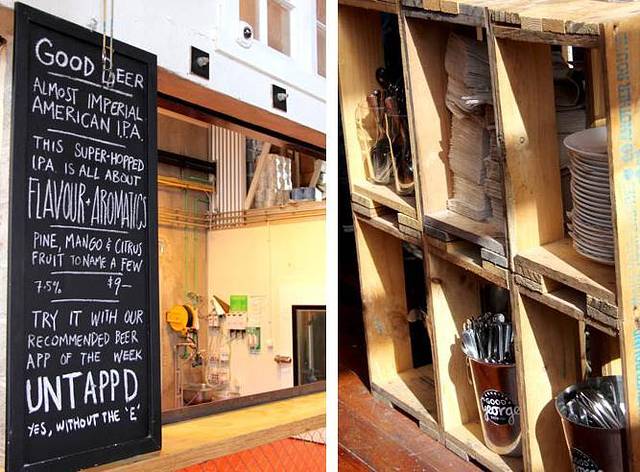 GOOD BEER
ALMOST IMPERIAL
AMERICAN I.P.A.
THIS SUPER-HOPPED
IPA IS ALL ABOUT
FLAVOUR + AROMATICS
PINE, MANGO & CITRUS
FRUIT TO NAME A FEW
7.5% $9-
TRY IT WITH OUR
RECOMMENDED BEER
APP OF THE WEEK
UNTAPPD
YES, WITHOUT THE 'E'
GOOD
george